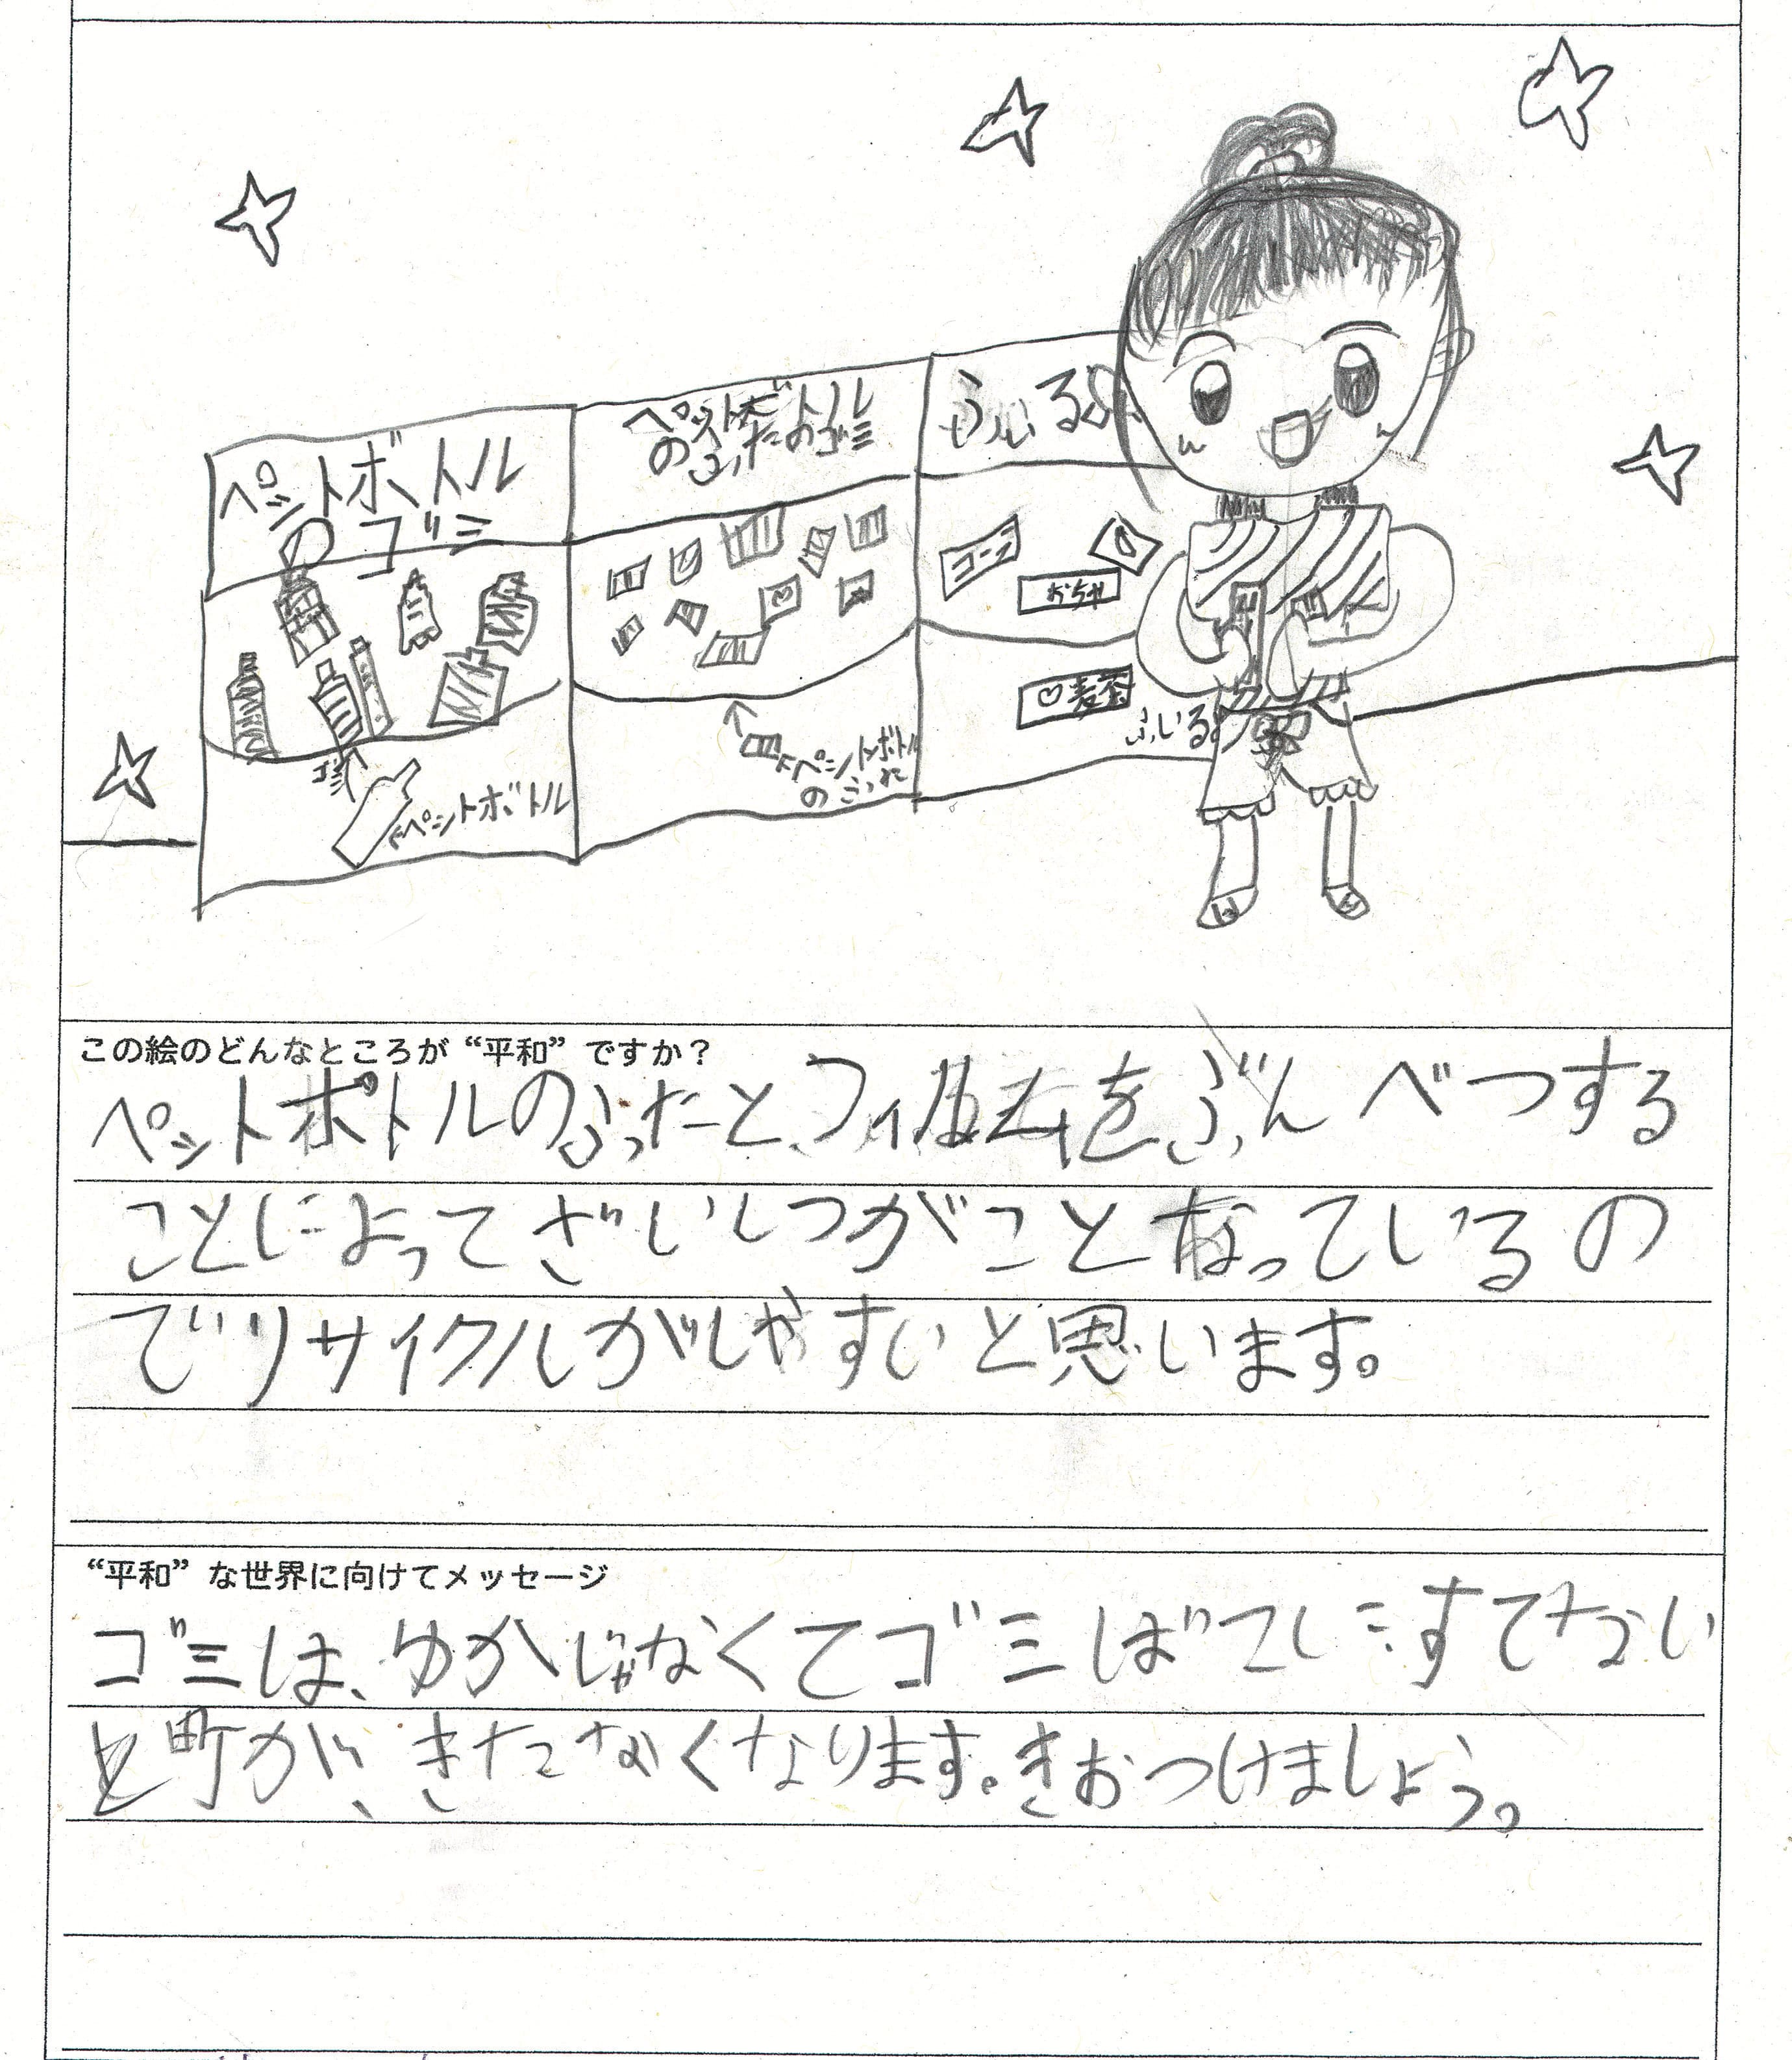 ペットボトル
のゴミ
ペットボトル
のふたのゴミ
ふぃるむ
コーラ
おちゃ
麦茶
ふぃるむ
ゴミ
ペットボトル
ペットボトル
のふた
この絵のどんなところが“平和”ですか?
ペットボトルのふたと、フィルムをぶんべつする
ことによってざいしつがことなっているの
でリサイクルがしやすいと思います。
“平和”な世界に向けてメッセージ
ゴミは、ゆかじゃなくてゴミばこにすてない
と町が、きたなくなります。きおつけましょう。